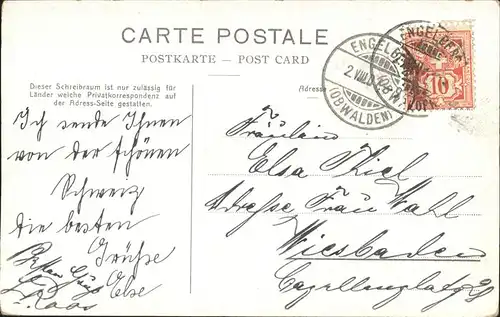 CARTE POSTALE
POSTKARTE — POST CARD
Dieser Schreibraum ist nur zulässig für
Länder welche Privatkorrespondenz auf
der Adress-Seite gestatten.
Adresse
ENGELBERG
2.VIII
(OBWALDEN)
ENGELBERG
10
Ich sende Ihnen
von der schönen
Schweiz
die besten
Grüße
Else
Fräulein
Elsa Kiel
Adresse Frau Wahl
Wiesbaden